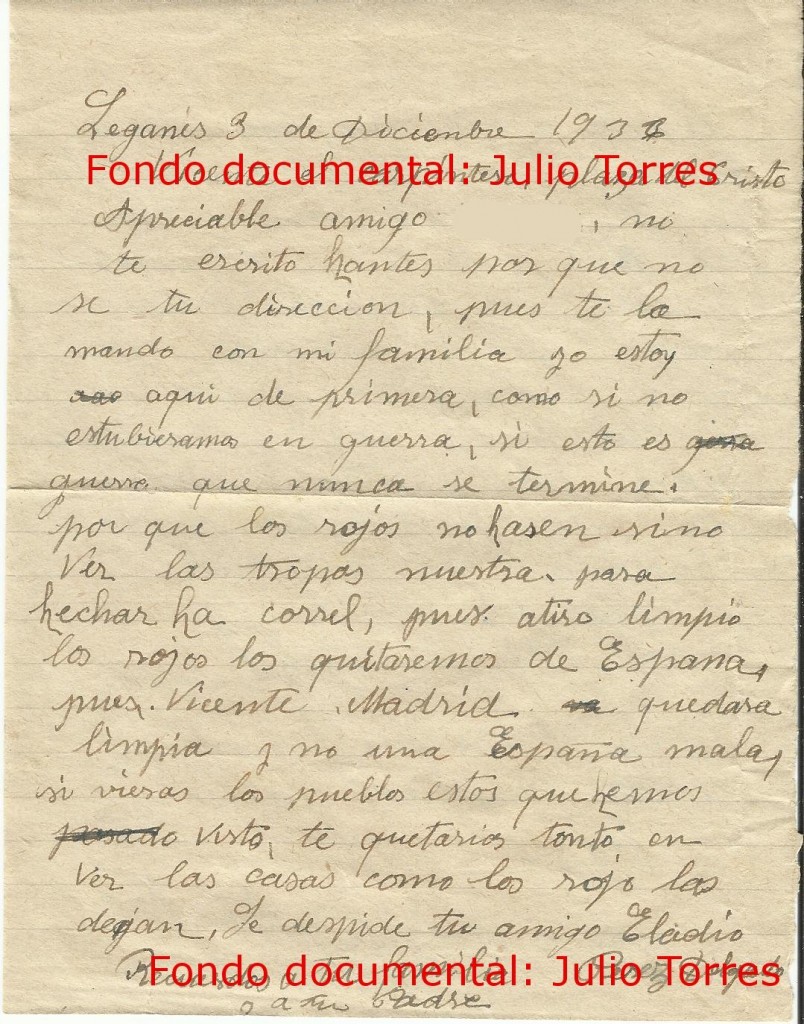 Leganés 3 de Diciembre 1936
Fondo documental: Julio Torres
el carpintero, plaza del Cristo
Apreciable amigo , no
te escrito hantes por que no
se tu direccion, pues te la
mando con mi familia yo estoy
aqui de primera, como si no
estubieramos en guerra, si esto es
guerra que nunca se termine.
por que los rojos no hasen sino
Ver las tropas nuestra para
hechar ha correl, pues atiro limpio
los rojos los quitaremos de España,
pues Vicente Madrid quedara
limpia y no una España mala,
si vieras los pueblos estos que hemos
visto, te quetarias tonto en
ver las casas como los rojo las
degan, Se despide tu amigo Eladio
Recuerdos a tu familia Perez Delgado
Fondo documental: Julio Torres
y a tu Padre